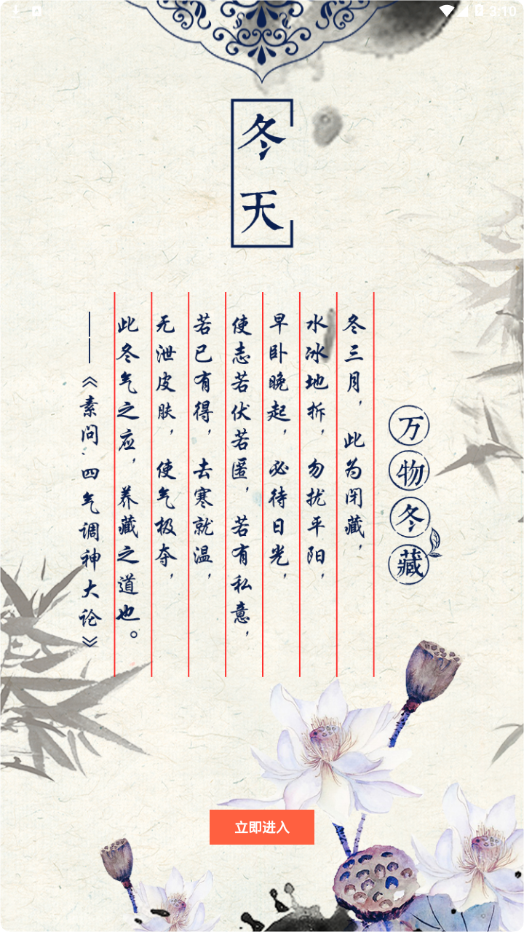 3:10
冬天
万物冬藏
冬三月，此为闭藏，
水冰地坼，勿扰平阳，
早卧晚起，必待日光，
使志若伏若匿，若有私意，
若已有得，去寒就温，
无泄皮肤，使气极夺，
此冬气之应，养藏之道也。
——《素问·四气调神大论》
立即进入